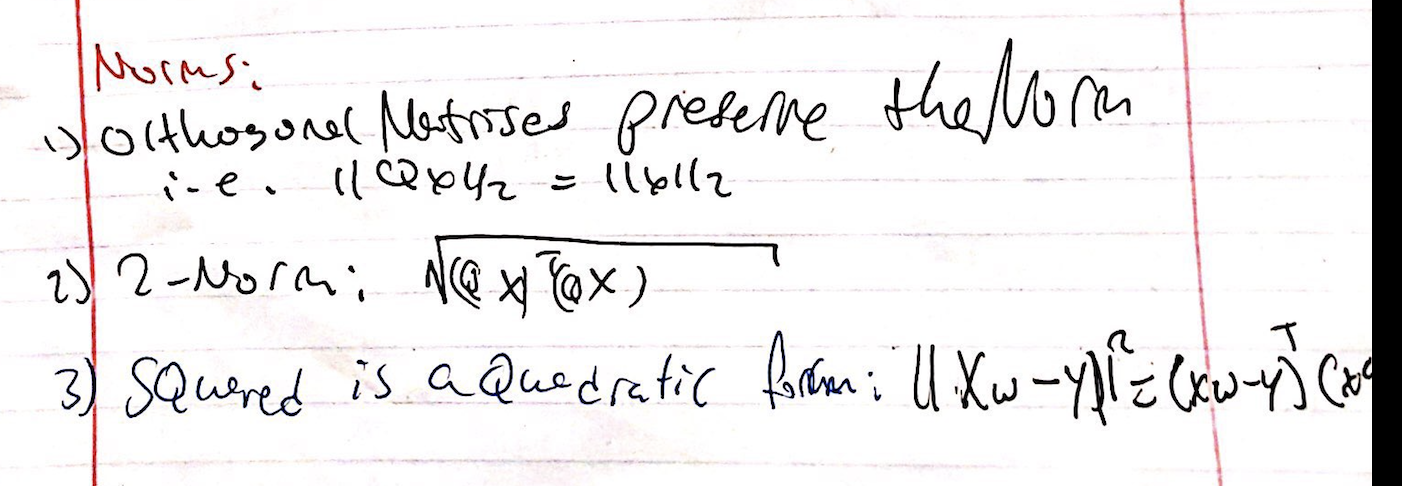 Norms:
1) Orthogonal Matrises preserve the Norm
i.e. ||Qx||₂ = ||x||₂
2) 2-Norm: √(Qx)ᵀ(Qx)
3) SQuared is a Quadratic form: ||Xw-y||² = (Xw-y)ᵀ(Xw